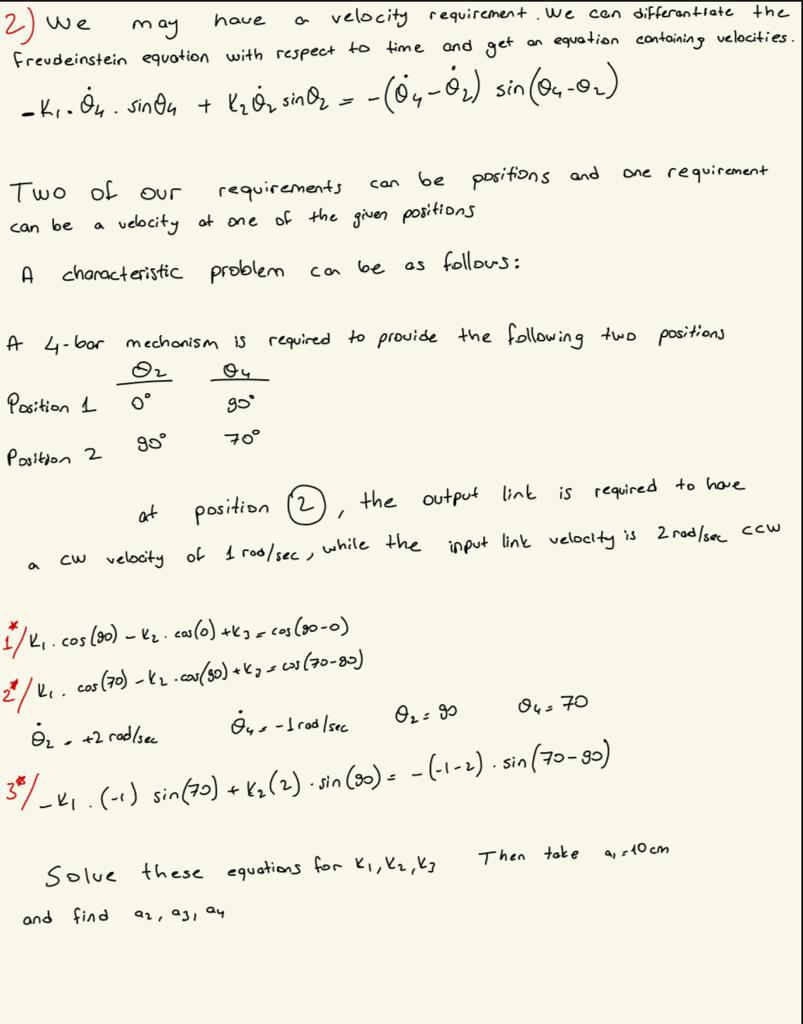 2) We may have a velocity requirement. We can differantiate the
Freudeinstein equation with respect to time and get an equation containing velocities.
-K₁. θ̇₄ . sinθ₄ + K₂θ̇₂ sinθ₂ = -(θ̇₄-θ̇₂) sin(θ₄-θ₂)
Two of our requirements can be positions and one requirement
can be a velocity at one of the given positions
A characteristic problem can be as follows:
A 4-bar mechanism is required to provide the following two positions
θ₂ θ₄
Position 1 0° 90°
Position 2 90° 70°
at position 2, the output link is required to have
a cw velocity of 1 rad/sec, while the input link velocity is 2 rad/sec ccw
1*/ K₁ . cos(90) - K₂ . cos(0) + K₃ = cos(90-0)
2*/ K₁ . cos(70) - K₂ . cos(90) + K₃ = cos(70-90)
θ̇₂ = +2 rad/sec θ̇₄ = -1 rad/sec θ₂ = 90 θ₄ = 70
3*/ -K₁ . (-1) sin(70) + K₂(2) . sin(90) = -(-1-2) . sin(70-90)
Solve these equations for K₁, K₂, K₃ Then take a₁ = 10 cm
and find a₂, a₃, a₄